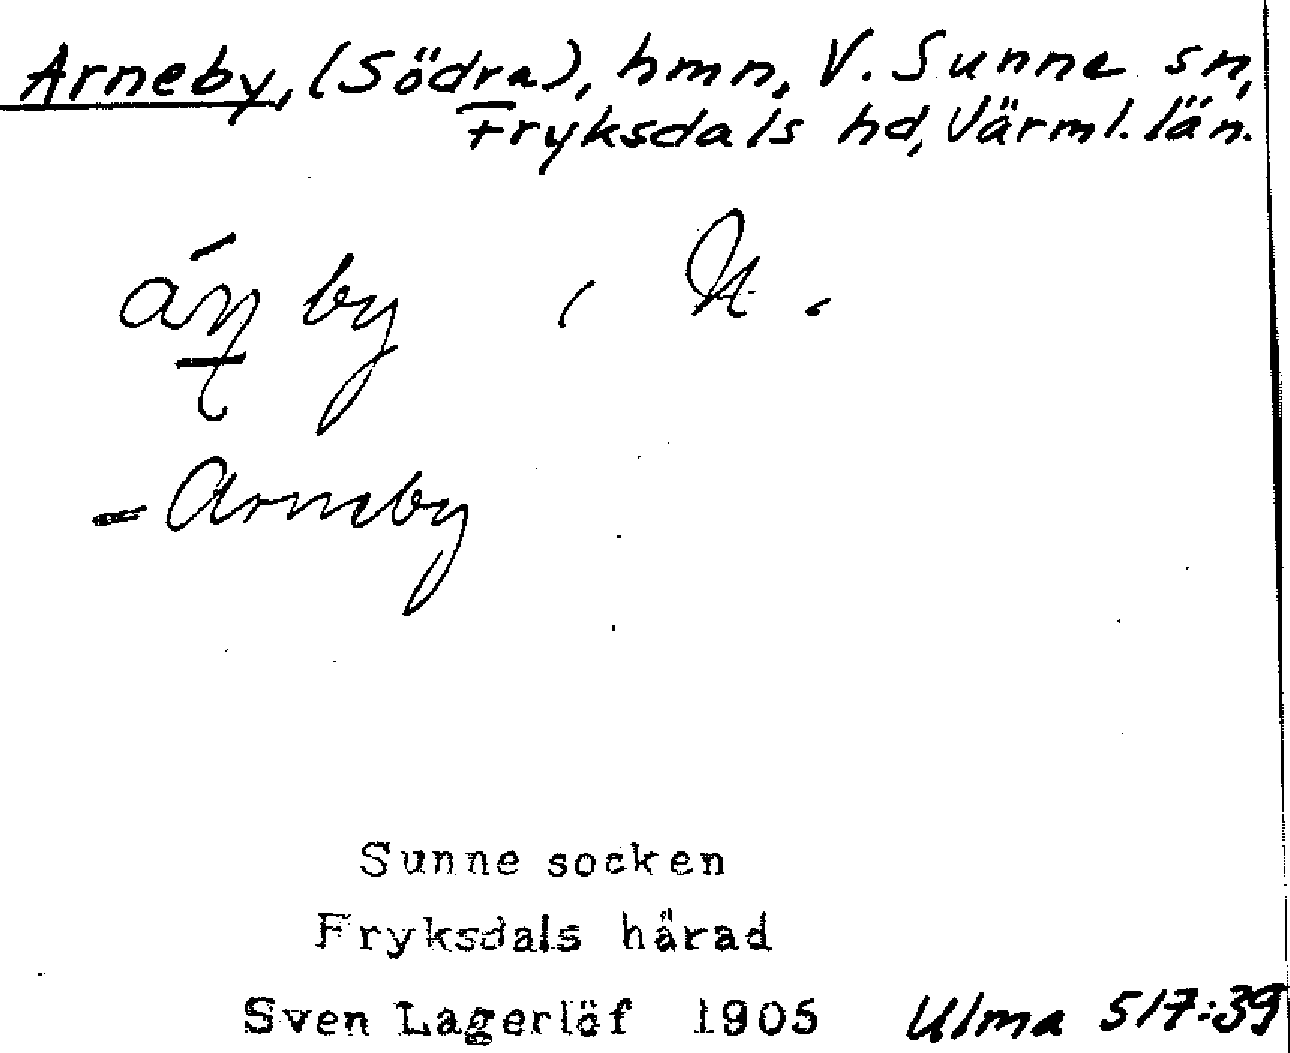 Arneby, (Södra), hmn, V. Sunne sn,
Fryksdals hd, Värml. län.
by
= Arneby
Sunne socken
Fryksdals härad
Sven Lagerlöf 1905 Ulma 517:39